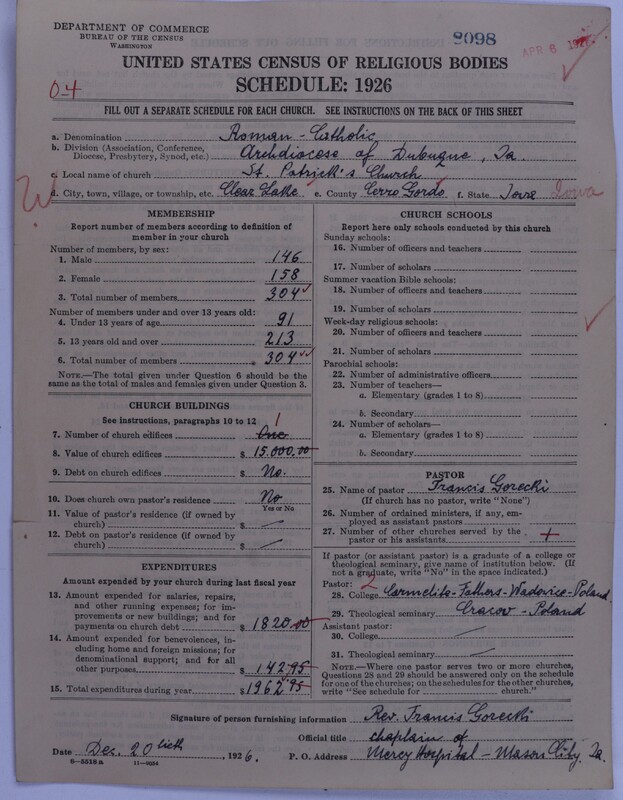 DEPARTMENT OF COMMERCE
BUREAU OF THE CENSUS
WASHINGTON
8098
APR 6 192
UNITED STATES CENSUS OF RELIGIOUS BODIES
SCHEDULE: 1926
0-4
FILL OUT A SEPARATE SCHEDULE FOR EACH CHURCH. SEE INSTRUCTIONS ON THE BACK OF THIS SHEET
a. Denomination Roman-Catholic
b. Division (Association, Conference, Diocese, Presbytery, Synod, etc.) Archdiocese of Dubuque, Ia.
c. Local name of church St. Patrick's Church
d. City, town, village, or township, etc. Clear Lake e. County Cerro Gordo f. State Iowa Iowa
MEMBERSHIP
Report number of members according to definition of
member in your church
Number of members, by sex:
1. Male 146
2. Female 158
3. Total number of members 304
Number of members under and over 13 years old:
4. Under 13 years of age 91
5. 13 years old and over 213
6. Total number of members 304
NOTE.—The total given under Question 6 should be
the same as the total of males and females given under Question 3.
CHURCH BUILDINGS
See instructions, paragraphs 10 to 12
7. Number of church edifices One 1
8. Value of church edifices $ 15.000.00
9. Debt on church edifices $ No.
10. Does church own pastor's residence No
Yes or No
11. Value of pastor's residence (if owned by
church) $
12. Debt on pastor's residence (if owned by
church) $
EXPENDITURES
Amount expended by your church during last fiscal year
13. Amount expended for salaries, repairs,
and other running expenses; for im-
provements or new buildings; and for
payments on church debt $ 1820.00
14. Amount expended for benevolences, in-
cluding home and foreign missions; for
denominational support; and for all
other purposes $ 142.95
15. Total expenditures during year $ 1962.95
CHURCH SCHOOLS
Report here only schools conducted by this church
Sunday schools:
16. Number of officers and teachers
17. Number of scholars
Summer vacation Bible schools:
18. Number of officers and teachers
19. Number of scholars
Week-day religious schools:
20. Number of officers and teachers
21. Number of scholars
Parochial schools:
22. Number of administrative officers
23. Number of teachers—
a. Elementary (grades 1 to 8)
b. Secondary
24. Number of scholars—
a. Elementary (grades 1 to 8)
b. Secondary
PASTOR
25. Name of pastor Francis Gorecki
(If church has no pastor, write "None")
26. Number of ordained ministers, if any, em-
ployed as assistant pastors
27. Number of other churches served by the
pastor or his assistants
If pastor (or assistant pastor) is a graduate of a college or
theological seminary, give name of institution below. (If
not a graduate, write "No" in the space indicated.)
Pastor: 2
28. College Carmelite-Fathers-Wadovice-Poland
29. Theological seminary Cracov-Poland
Assistant pastor:
30. College
31. Theological seminary
NOTE.—Where one pastor serves two or more churches,
Questions 28 and 29 should be answered only on the schedule
for one of the churches; on the schedules for the other churches,
write "See schedule for church."
Signature of person furnishing information Rev. Francis Gorecki
Official title chaplain of
Date Dec. 20 , 1926. P. O. Address Mercy Hospital-Mason City, Ia.
6-5518a 11-9054